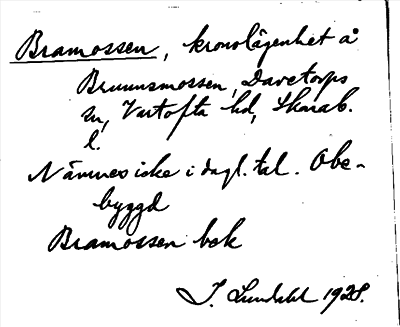 Bramossen, kronolägenhet å
Brunnsmossen, Daretorps
sn, Vartofta hd, Skarab.
l.
Nämnes icke i dagl. tal. Obe-
byggd
Bramossen bek
I. Lundahl 1928.